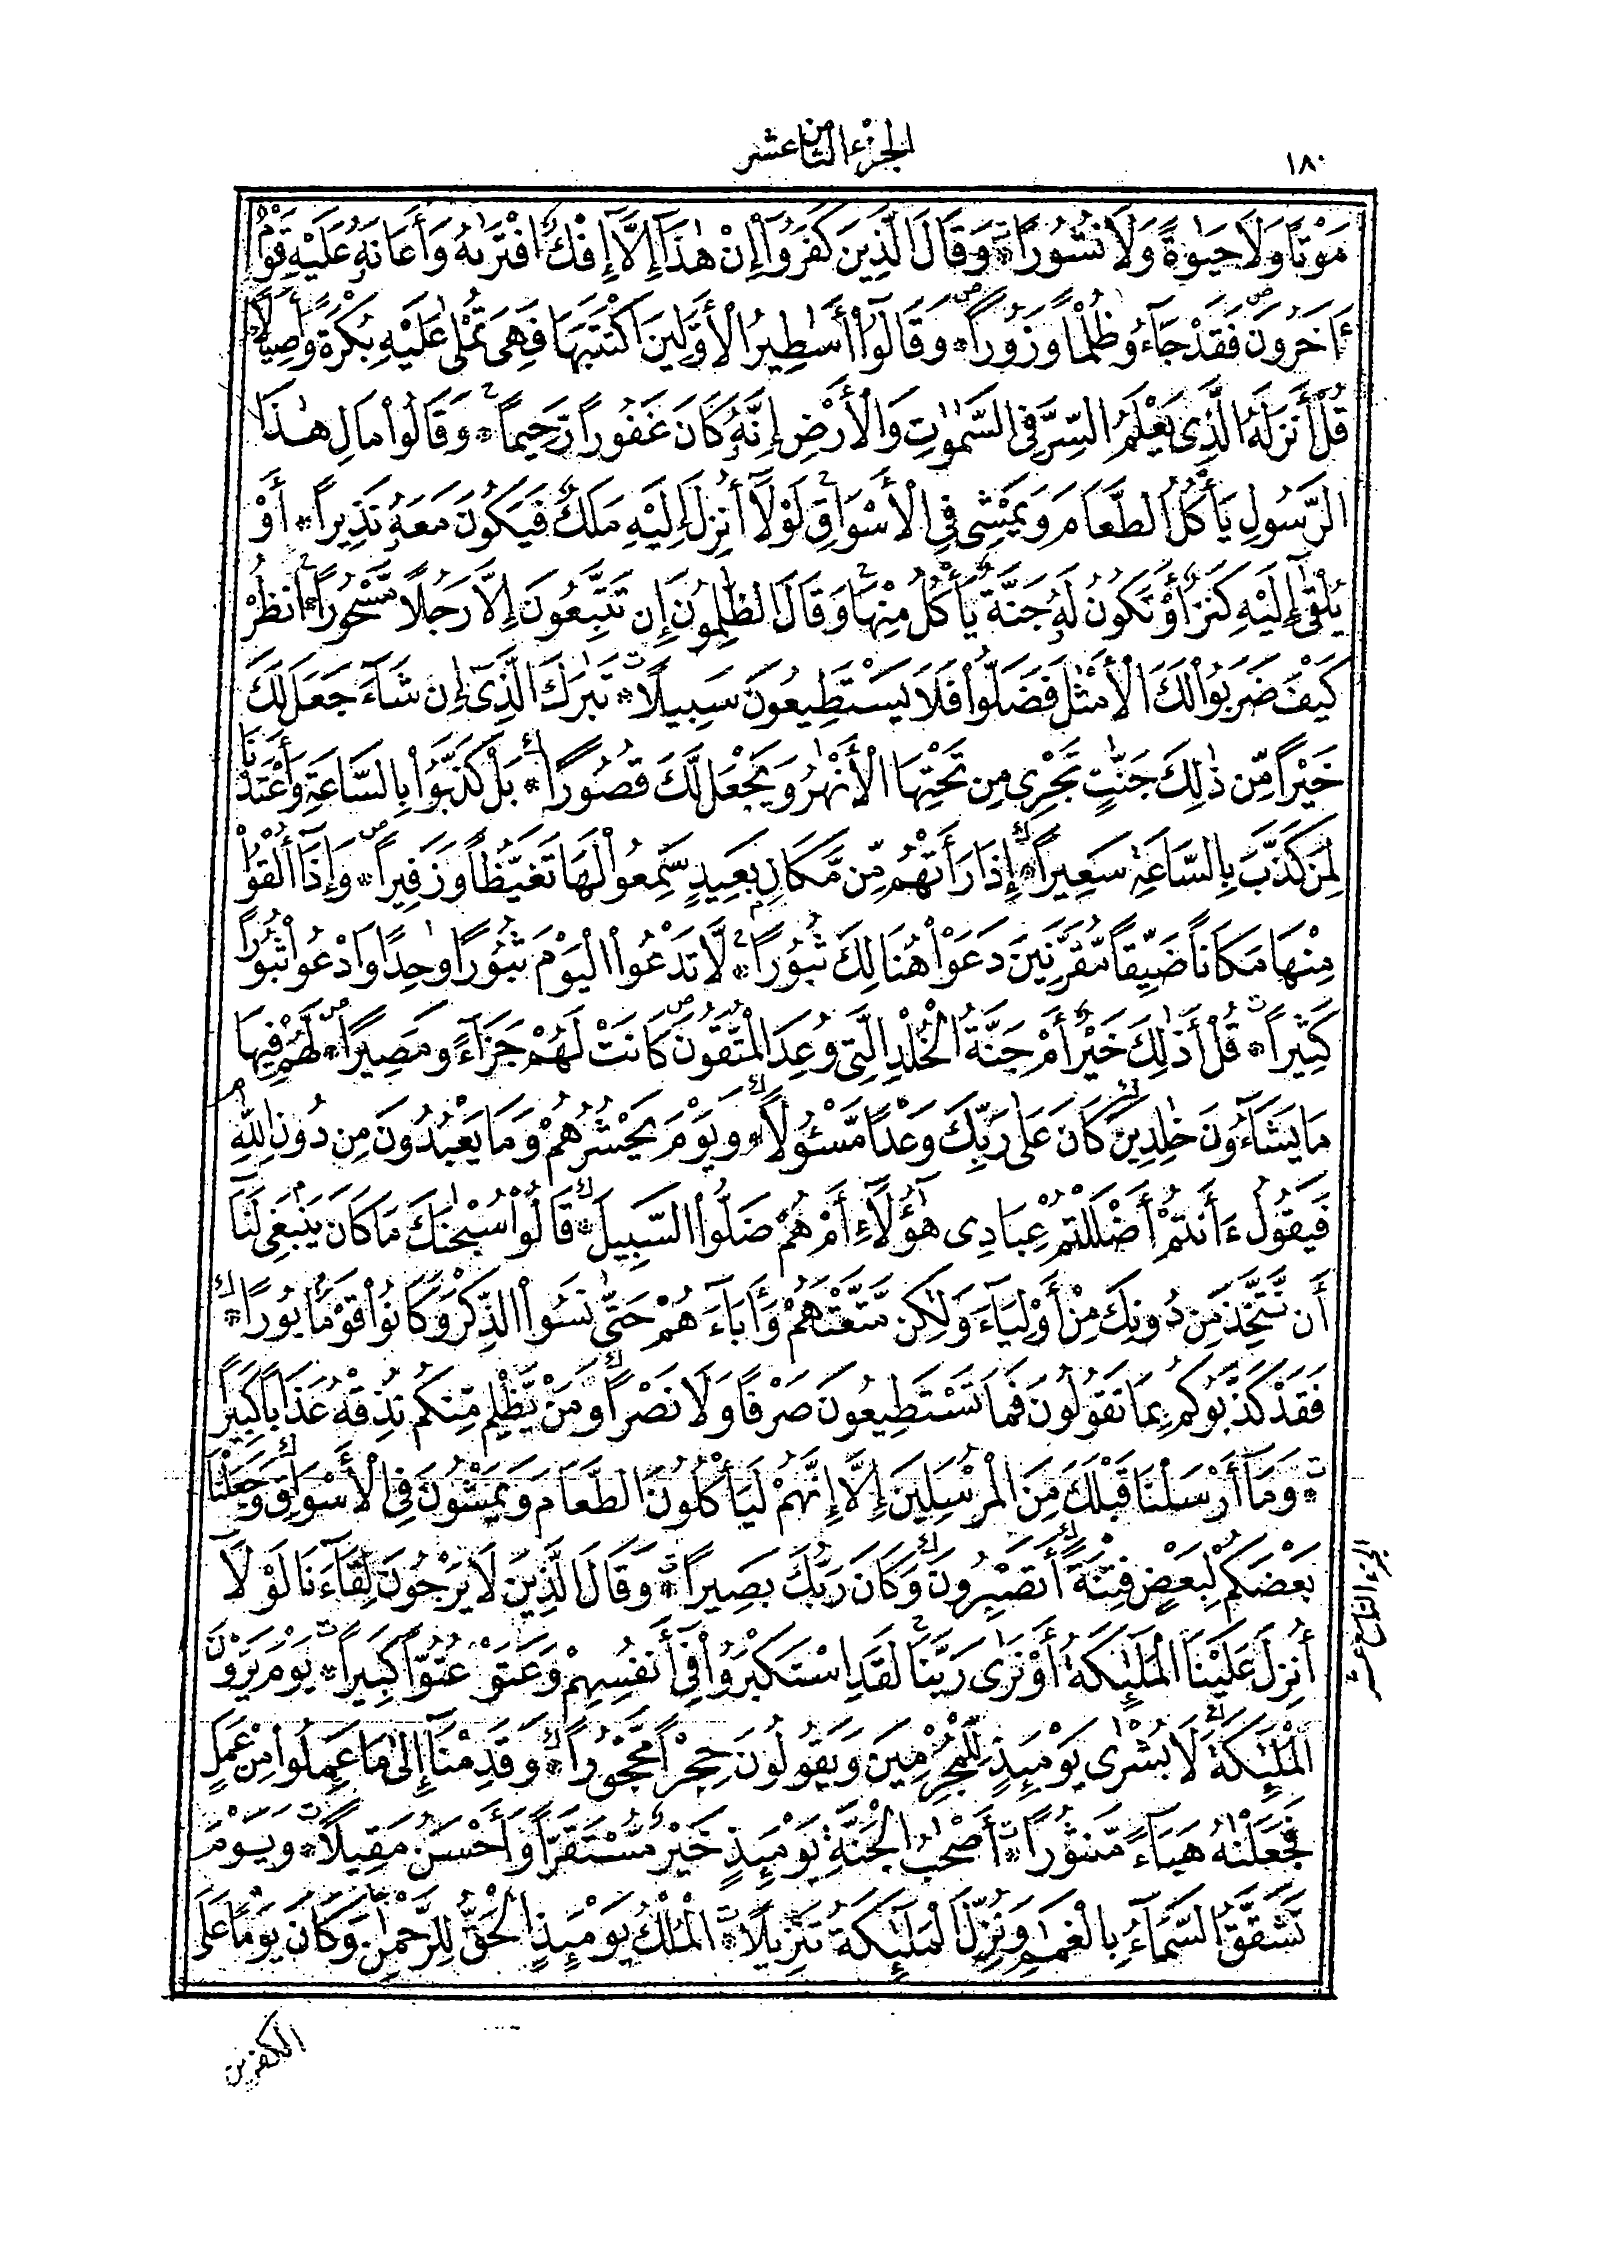 ١٨٠
الجزء الثامن عشر
مَوْتًا وَلَا حَيَوٰةً وَلَا نُشُورًا * وَقَالَ ٱلَّذِينَ كَفَرُوٓا۟ إِنْ هَٰذَآ إِلَّآ إِفْكٌ ٱفْتَرَىٰهُ وَأَعَانَهُۥ عَلَيْهِ قَوْمٌ
ءَاخَرُونَ فَقَدْ جَآءُو ظُلْمًا وَزُورًا * وَقَالُوٓا۟ أَسَٰطِيرُ ٱلْأَوَّلِينَ ٱكْتَتَبَهَا فَهِىَ تُمْلَىٰ عَلَيْهِ بُكْرَةً وَأَصِيلًا *
قُلْ أَنزَلَهُ ٱلَّذِى يَعْلَمُ ٱلسِّرَّ فِى ٱلسَّمَٰوَٰتِ وَٱلْأَرْضِ إِنَّهُۥ كَانَ غَفُورًا رَّحِيمًا * وَقَالُوا۟ مَالِ هَٰذَا
ٱلرَّسُولِ يَأْكُلُ ٱلطَّعَامَ وَيَمْشِى فِى ٱلْأَسْوَاقِ لَوْلَآ أُنزِلَ إِلَيْهِ مَلَكٌ فَيَكُونَ مَعَهُۥ نَذِيرًا * أَوْ
يُلْقَىٰٓ إِلَيْهِ كَنزٌ أَوْ تَكُونُ لَهُۥ جَنَّةٌ يَأْكُلُ مِنْهَا وَقَالَ ٱلظَّٰلِمُونَ إِن تَتَّبِعُونَ إِلَّا رَجُلًا مَّسْحُورًا * ٱنظُرْ
كَيْفَ ضَرَبُوا۟ لَكَ ٱلْأَمْثَٰلَ فَضَلُّوا۟ فَلَا يَسْتَطِيعُونَ سَبِيلًا * تَبَٰرَكَ ٱلَّذِىٓ إِن شَآءَ جَعَلَ لَكَ
خَيْرًا مِّن ذَٰلِكَ جَنَّٰتٍ تَجْرِى مِن تَحْتِهَا ٱلْأَنْهَٰرُ وَيَجْعَل لَّكَ قُصُورًا * بَلْ كَذَّبُوا۟ بِٱلسَّاعَةِ وَأَعْتَدْنَا
لِمَن كَذَّبَ بِٱلسَّاعَةِ سَعِيرًا * إِذَا رَأَتْهُم مِّن مَّكَانٍ بَعِيدٍ سَمِعُوا۟ لَهَا تَغَيُّظًا وَزَفِيرًا * وَإِذَآ أُلْقُوا۟
مِنْهَا مَكَانًا ضَيِّقًا مُّقَرَّنِينَ دَعَوْا۟ هُنَالِكَ ثُبُورًا * لَّا تَدْعُوا۟ ٱلْيَوْمَ ثُبُورًا وَٰحِدًا وَٱدْعُوا۟ ثُبُورًا
كَثِيرًا * قُلْ أَذَٰلِكَ خَيْرٌ أَمْ جَنَّةُ ٱلْخُلْدِ ٱلَّتِى وُعِدَ ٱلْمُتَّقُونَ كَانَتْ لَهُمْ جَزَآءً وَمَصِيرًا * لَّهُمْ فِيهَا
مَا يَشَآءُونَ خَٰلِدِينَ كَانَ عَلَىٰ رَبِّكَ وَعْدًا مَّسْـُٔولًا * وَيَوْمَ يَحْشُرُهُمْ وَمَا يَعْبُدُونَ مِن دُونِ ٱللَّهِ
فَيَقُولُ ءَأَنتُمْ أَضْلَلْتُمْ عِبَادِى هَٰٓؤُلَآءِ أَمْ هُمْ ضَلُّوا۟ ٱلسَّبِيلَ * قَالُوا۟ سُبْحَٰنَكَ مَا كَانَ يَنۢبَغِى لَنَآ
أَن نَّتَّخِذَ مِن دُونِكَ مِنْ أَوْلِيَآءَ وَلَٰكِن مَّتَّعْتَهُمْ وَءَابَآءَهُمْ حَتَّىٰ نَسُوا۟ ٱلذِّكْرَ وَكَانُوا۟ قَوْمًۢا بُورًا *
فَقَدْ كَذَّبُوكُم بِمَا تَقُولُونَ فَمَا تَسْتَطِيعُونَ صَرْفًا وَلَا نَصْرًا وَمَن يَظْلِم مِّنكُمْ نُذِقْهُ عَذَابًا كَبِيرًا
* وَمَآ أَرْسَلْنَا قَبْلَكَ مِنَ ٱلْمُرْسَلِينَ إِلَّآ إِنَّهُمْ لَيَأْكُلُونَ ٱلطَّعَامَ وَيَمْشُونَ فِى ٱلْأَسْوَاقِ وَجَعَلْنَا
بَعْضَكُمْ لِبَعْضٍ فِتْنَةً أَتَصْبِرُونَ وَكَانَ رَبُّكَ بَصِيرًا * وَقَالَ ٱلَّذِينَ لَا يَرْجُونَ لِقَآءَنَا لَوْلَآ
الجزء التاسع عشر
أُنزِلَ عَلَيْنَا ٱلْمَلَٰٓئِكَةُ أَوْ نَرَىٰ رَبَّنَا لَقَدِ ٱسْتَكْبَرُوا۟ فِىٓ أَنفُسِهِمْ وَعَتَوْ عُتُوًّا كَبِيرًا * يَوْمَ يَرَوْنَ
ٱلْمَلَٰٓئِكَةَ لَا بُشْرَىٰ يَوْمَئِذٍ لِّلْمُجْرِمِينَ وَيَقُولُونَ حِجْرًا مَّحْجُورًا * وَقَدِمْنَآ إِلَىٰ مَا عَمِلُوا۟ مِنْ عَمَلٍ
فَجَعَلْنَٰهُ هَبَآءً مَّنثُورًا * أَصْحَٰبُ ٱلْجَنَّةِ يَوْمَئِذٍ خَيْرٌ مُّسْتَقَرًّا وَأَحْسَنُ مَقِيلًا * وَيَوْمَ
تَشَقَّقُ ٱلسَّمَآءُ بِٱلْغَمَٰمِ وَنُزِّلَ ٱلْمَلَٰٓئِكَةُ تَنزِيلًا * ٱلْمُلْكُ يَوْمَئِذٍ ٱلْحَقُّ لِلرَّحْمَٰنِ وَكَانَ يَوْمًا عَلَى
الكفرين